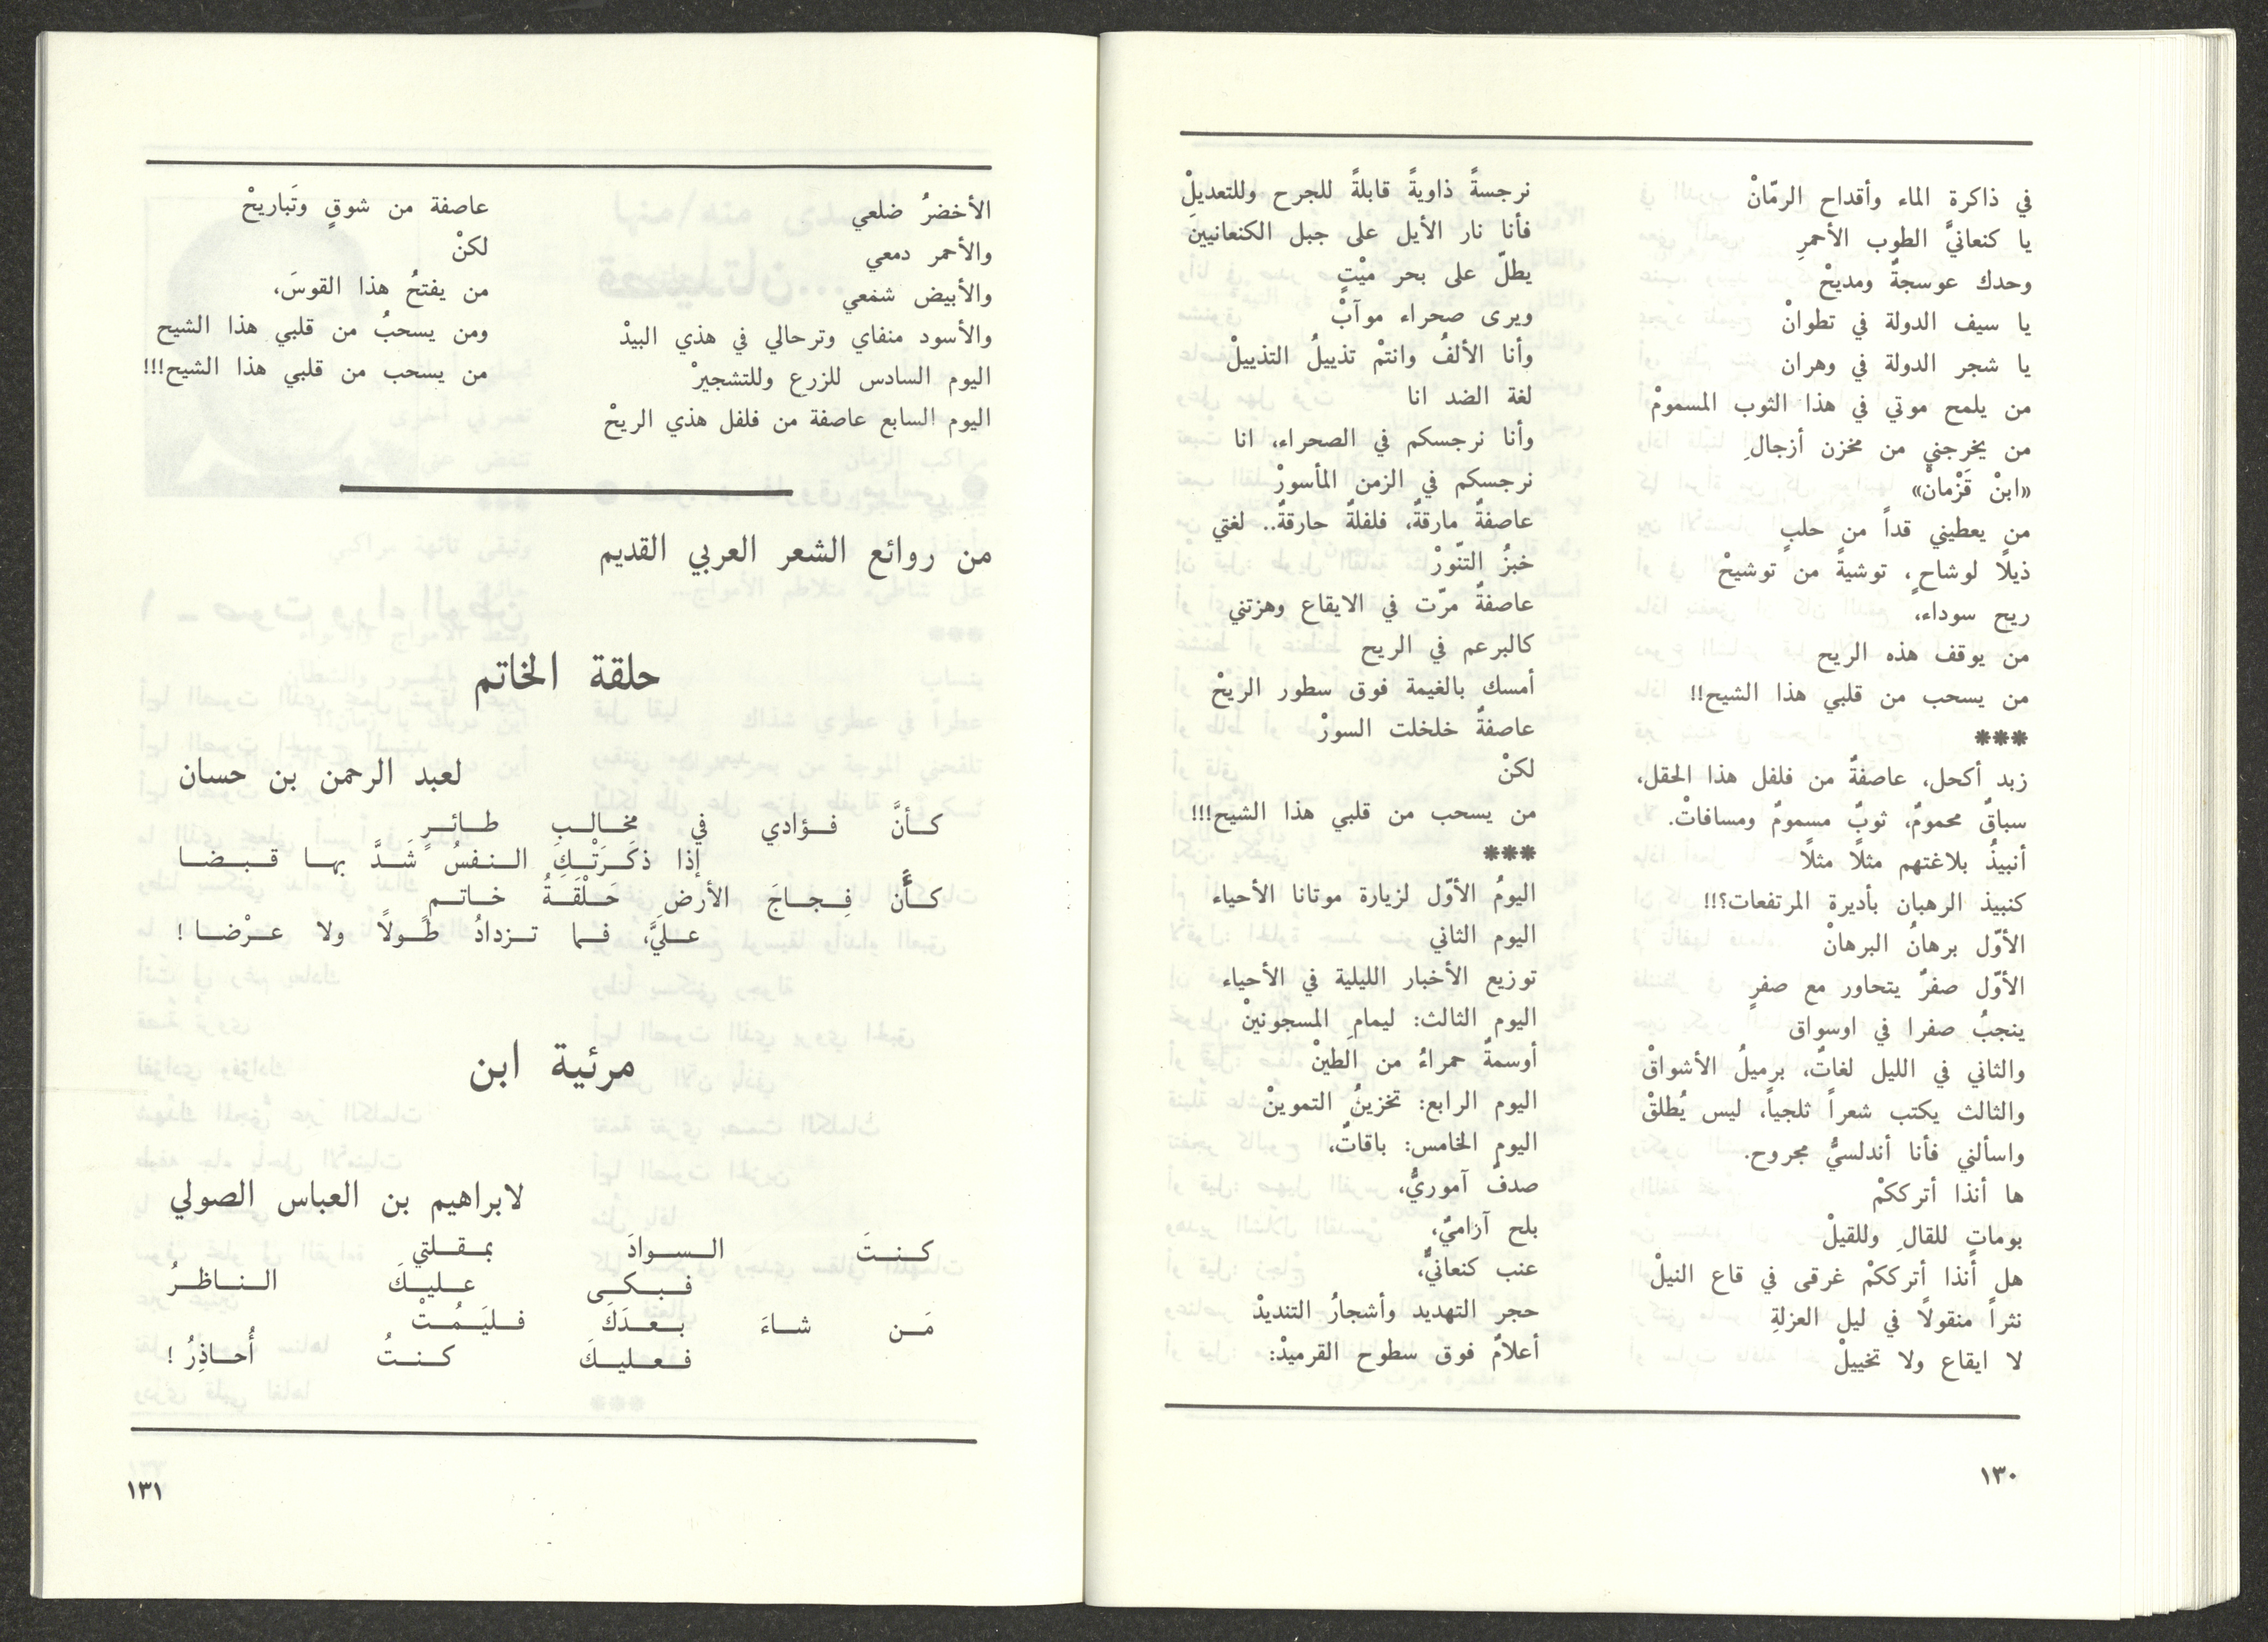 في ذاكرة الماء وأقداح الرمّانْ
يا كنعانيَّ الطوب الأحمرِ
وحدك عوسجةٌ ومديحْ
يا سيف الدولة في تطوانْ
يا شجر الدولة في وهران
من يلمح موتي في هذا الثوب المسمومْ
من يخرجني من مخزن أزجالِ
«ابنْ قَزْمانْ»
من يعطيني قداً من حلبٍ
ذيلًا لوشاحٍ، توشيةً من توشيحْ
ريح سوداء،
من يوقف هذه الريح
من يسحب من قلبي هذا الشيح!!
***
زبد أكحل، عاصفةٌ من فلفل هذا الحقل،
سباقٌ محمومٌ، ثوبٌ مسمومٌ ومسافاتْ.
أنبيذُ بلاغتهم مثلًا مثلًا
كنبيذ الرهبان بأديرة المرتفعات؟!!
الأوّل برهانُ البرهانْ
الأوّل صفرٌ يتحاور مع صفرٍ
ينجبُ صفرا في اوسواق
والثاني في الليل لغاتٌ، برميلُ الأشواقْ
والثالث يكتب شعراً ثلجياً، ليس يُطلقْ
واسألني فأنا أندلسيٌّ مجروح.
ها أنذا أترككمْ
بوماتٍ للقالِ وللقيلْ
هل أنذا أترككمْ غرقى في قاع النيلْ
نثراً منقولًا في ليل العزلةِ
لا ايقاع ولا تخييلْ
نرجسةً ذاويةً قابلةً للجرح وللتعديلْ
فأنا نار الأيل على جبل الكنعانيينَ
يطلّ على بحر ميْتٍ
ويرى صحراء موآبْ
وأنا الألفُ وانتمْ تذييلُ التذييلْ
لغة الضد انا
وأنا نرجسكم في الصحراء، انا
نرجسكم في الزمن المأسورْ
عاصفةٌ مارقةٌ، فلفلةٌ حارقةٌ.. لغتي
خبزُ التنّورْ
عاصفةٌ مرّت في الايقاع وهزتني
كالبرعم في الريح
أمسك بالغيمة فوق سطور الريحْ
عاصفةٌ خلخلت السورْ
لكنْ
من يسحب من قلبي هذا الشيح!!!
***
اليومُ الأوّل لزيارة موتانا الأحياء
اليوم الثاني
توزيع الأخبار الليلية في الأحياء
اليوم الثالث: ليمامِ المسجونينْ
أوسمةٌ حمراءُ من الطينْ
اليوم الرابع: تخزينُ التموينْ
اليوم الخامس: باقاتٌ،
صدفٌ آموريٌّ،
بلح آراميٌ،
عنب كنعانيٌّ،
حجر التهديد وأشجارُ التنديدْ
أعلامٌ فوق سطوح القرميدْ:
١٣٠
الأخضرُ ضلعي
والأحمر دمعي
والأبيض شمعي
والأسود منفاي وترحالي في هذي البيدْ
اليوم السادس للزرع وللتشجيرْ
اليوم السابع عاصفة من فلفل هذي الريحْ
عاصفة من شوقٍ وتَباريحْ
لكنْ
من يفتحُ هذا القوسَ،
ومن يسحبُ من قلبي هذا الشيح
من يسحب من قلبي هذا الشيح!!!
من روائع الشعر العربي القديم
حلقة الخاتم
لعبد الرحمن بن حسان
كأنَّ فؤادي في مخالبِ طائرٍ
إذا ذكَرَتْكِ النفسُ شَدَّ بها قبضا
كأنَّ فِجاجَ الأرضِ حَلْقَةُ خاتمٍ
عليَّ، فما تزدادُ طولًا ولا عرْضا !
مرثية ابن
لابراهيم بن العباس الصولي
كنتَ السوادَ بمقلتي
فبكى عليكَ الناظرُ
مَن شاءَ بعدَكَ فليَمُتْ
فعليكَ كنتُ أُحاذِرُ !
١٣١